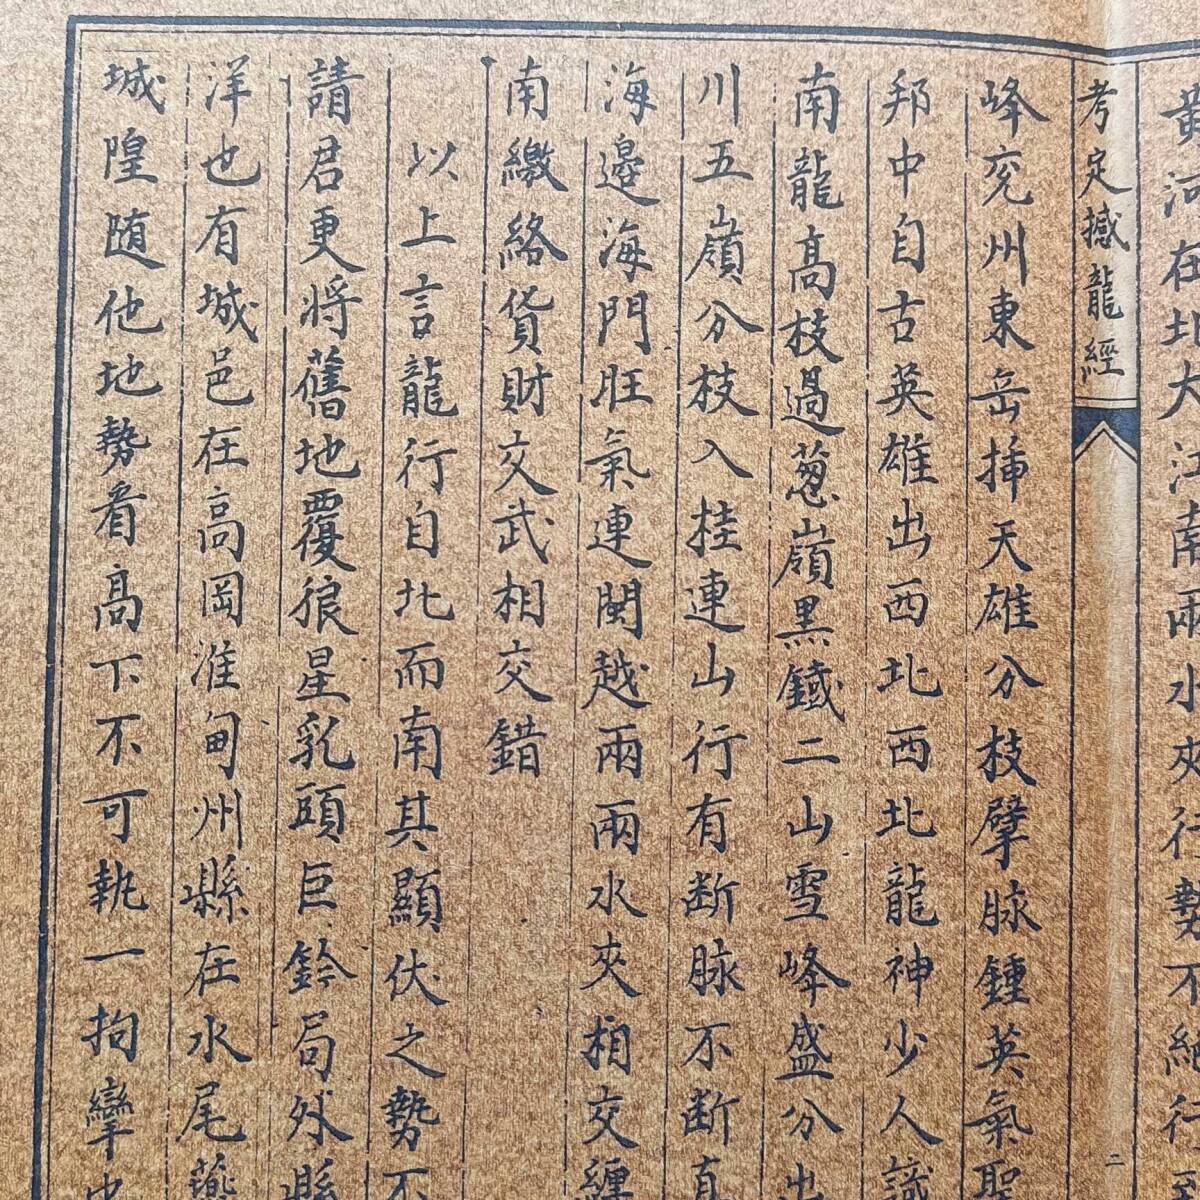 黄河在北大江南兩水夾行勢不絕行
考定撼龍經
二
峰兖州東岳揷天雄分枝擘脉鍾英氣聖
邦中自古英雄出西北西北龍神少人識
南龍高枝過葱嶺黑鐵二山雪峰盛分出
川五嶺分枝入桂連山行有断脉不断直
海邊海門旺氣連閩越兩兩水夾相交纏
南繳絡貨財交武相交錯
以上言龍行自北而南其顯伏之勢不
請君更將舊地覆狼星乳頭巨鈴局外縣
洋也有城邑在高岡淮甸州縣在水尾
城隍随他地勢看高下不可執一拘攣